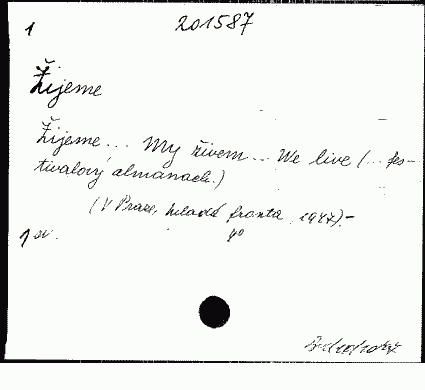 1
201587
Žijeme
Žijeme... My živem... We live (... fes-
tivalový almanach.)
(V Praze, Mladá fronta, 1947).-
1 sv.
4°